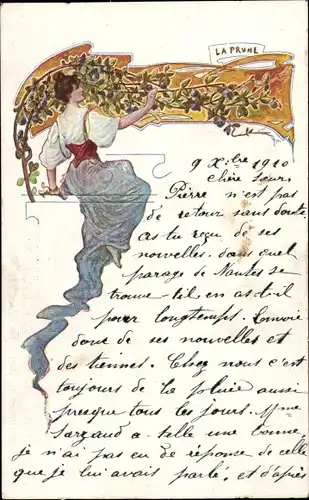 LA PRUNE
9 X.bre 1910
Chère Sœur.
Pierre n'est pas
de retour sans doute
as tu reçu de ses
nouvelles. dans quel
parage de Nantes se
trouve-til en a-t-il
pour longtemps. Envoie
donc de ses nouvelles et
des tiennes. Chez nous c'est
toujours de la pluie aussi
presque tous les jours. Mme
Sarzaud a-telle une bonne
je n'ai pas eu de réponse de celle
que je lui avais parlé, et d'après